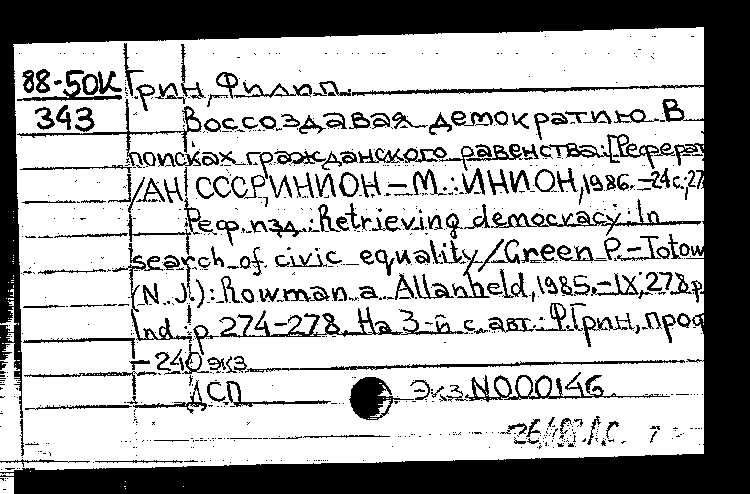 88-50К Грин, Филип.
343 Воссоздавая демократию В
поисках гражданского равенства:[Реферат
/АН СССР,ИНИОН.-М.:ИНИОН,1986.-24с.;27
Реф.изд.:Retrieving democracy:In
search of civic equality/Green P.-Totow
(N.J.):Rowman a. Allanheld,1985.-IX,278p
Ind.:p.274-278. На 3-й с.авт.:Ф.Грин,проф
-240экз
ДСП Экз.N000146.